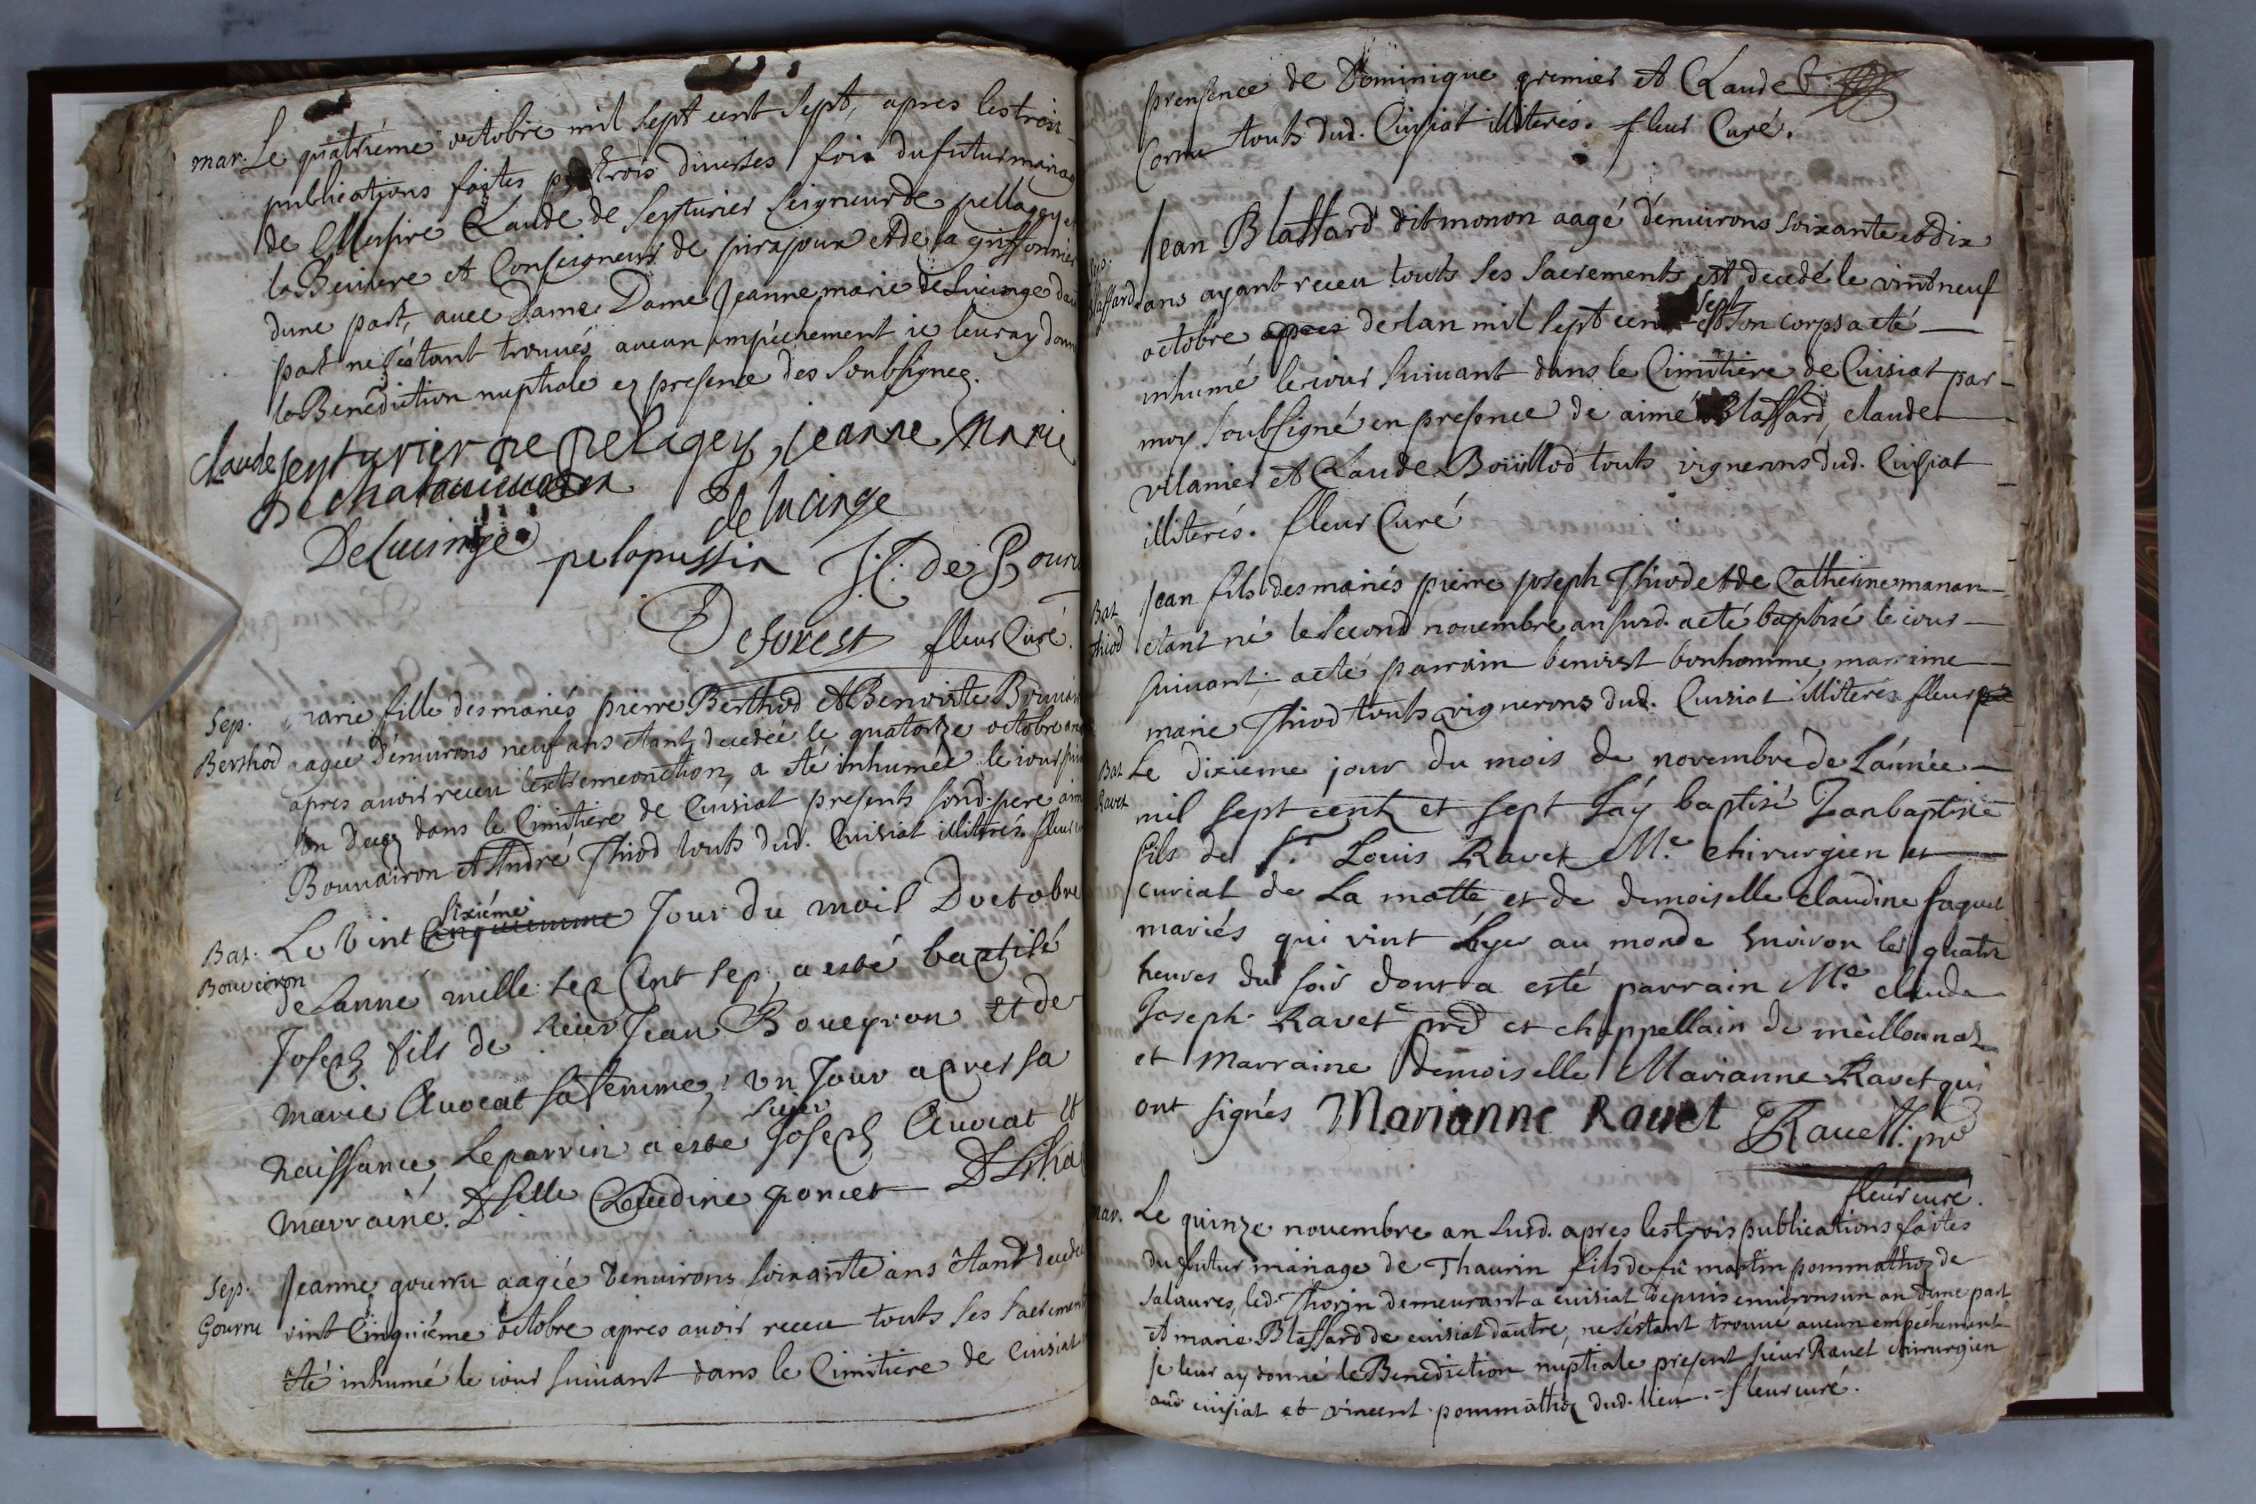 mar. Le quatrieme octobre mil sept cent sept, apres les trois
publications faites trois diuerses fois du futur mariag
de Messire Claude de Seyturier Seigneur de pellagey et
la Beuiere et Conseigneur de pirajoux et de la griffonnier
dune part, auec Dame Dame Jeanne marie de Lucinge dau
part ne sestant trouués aucun empéchement ie leur ay donn
la Benediction nuptiale en presence des Soubsignez.
claude seyturier de pelagey, jeanne Marie
de lucinge
DeLucinge pelapussin J. C. De Bour
Deforest fleur Curé.
Sep. Berthod
marie fille des mariés pierre Berthod et Benoiste
aagée denuirons neuf ans etant decedée le quatorze octobre an
apres auoir receu lextremeonction, a eté inhumée le iour sui
son decez dans le Cimitiere de Cuisiat presents sond. pere aim
Bouuairon et André Thiod touts dud. Cuisiat illiterés fleur
Bat. Bouveiron
sixiéme
Le Vint Cinquiemme Jour du mois Doctobre
de Lanné mille sep Cent sep, a esté baptisé
Joseph fils de sieur Jean Boueyron et de
marie Auocat sa femme, Un Jour apres sa
sieur
naissance, Le parrin a esté Joseph Auocat et
marraine. Dselle Claudine poncet
Sep. Gourru
Jeanne gourru aagée denuirons soixante ans etant decedé
vint Cinquiéme octobre apres auoir receu touts ses sacrement
eté inhumé le iour suiuant dans le Cimitiere de Cuisiat
prensence de Dominique premier et Claude
Cornu touts dud. Cuisiat illiterés. fleur Curé.
Sep. Blaffard
Jean Blaffard dit monon aagé denuirons soixante et dix
ans ayant receu touts ses sacrements est decedé le vint neuf
sept
octobre apres de lan mil sept cent et son corps a eté
inhumé le iour suiuant dans le Cimitiere de Cuisiat par
moy soubsigné en presence de aimé Blaffard, claude
vilanier et Claude Boüillod touts vignerons dud. Cuisiat
illiterés. fleur Curé
Bat. Thiod
Jean fils des mariés pierre joseph Thiod et de Catherine manan
etant né le second novembre an susd. a eté baptisé le iour
suiuant. a eté parrain benoist bonhomme, marrine
marie Thiod touts vignerons dud. Cuisiat illiterés fleur
Bat. Ravet
Le dixieme jour du mois de novembre de L'année
mil sept cent et sept J'ay baptisé Jean baptiste
fils de Sr. Louis Ravet Me. chirurgien et
curial de La motte et de demoiselle claudine faquet
mariés qui vint hyer au monde environ les quatre
heures du soir dont a esté parrain Me. claude
Joseph Ravet pre et chappellain de meillonnaz
et Marraine demoiselle Marianne Ravet qui
ont signés Marianne Ravet Ravett. pre
fleur curé.
mar. Le quinze novembre an susd. apres les trois publications faites
du futur mariage de Thaurin fils de fû martin pommathoz de
salaures, led. Thorin demeurant a cuisiat depuis environs un an dune part
et marie Blaffard de cuisiat dautre, ne s'estant trouué aucun empéchement
je leur ay donné la Benediction nuptiale present sieur Rauet chirurgien
aud cuisiat et vincent pommathoz dud. lieu. - fleur curé.